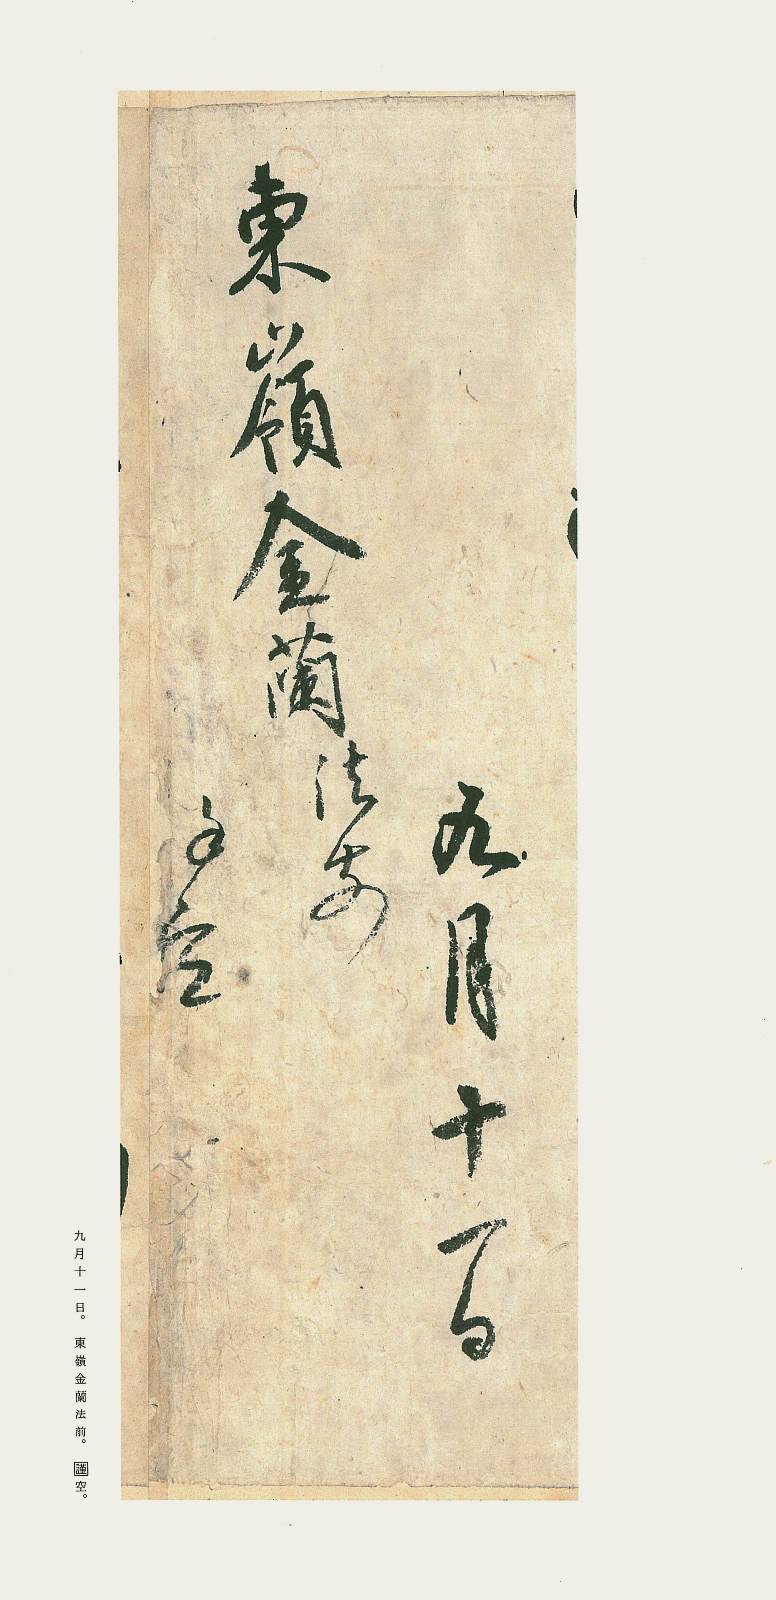 九月十一日
東嶺金蘭法前
空
九月十一日。 東嶺金蘭法前。 謹空。